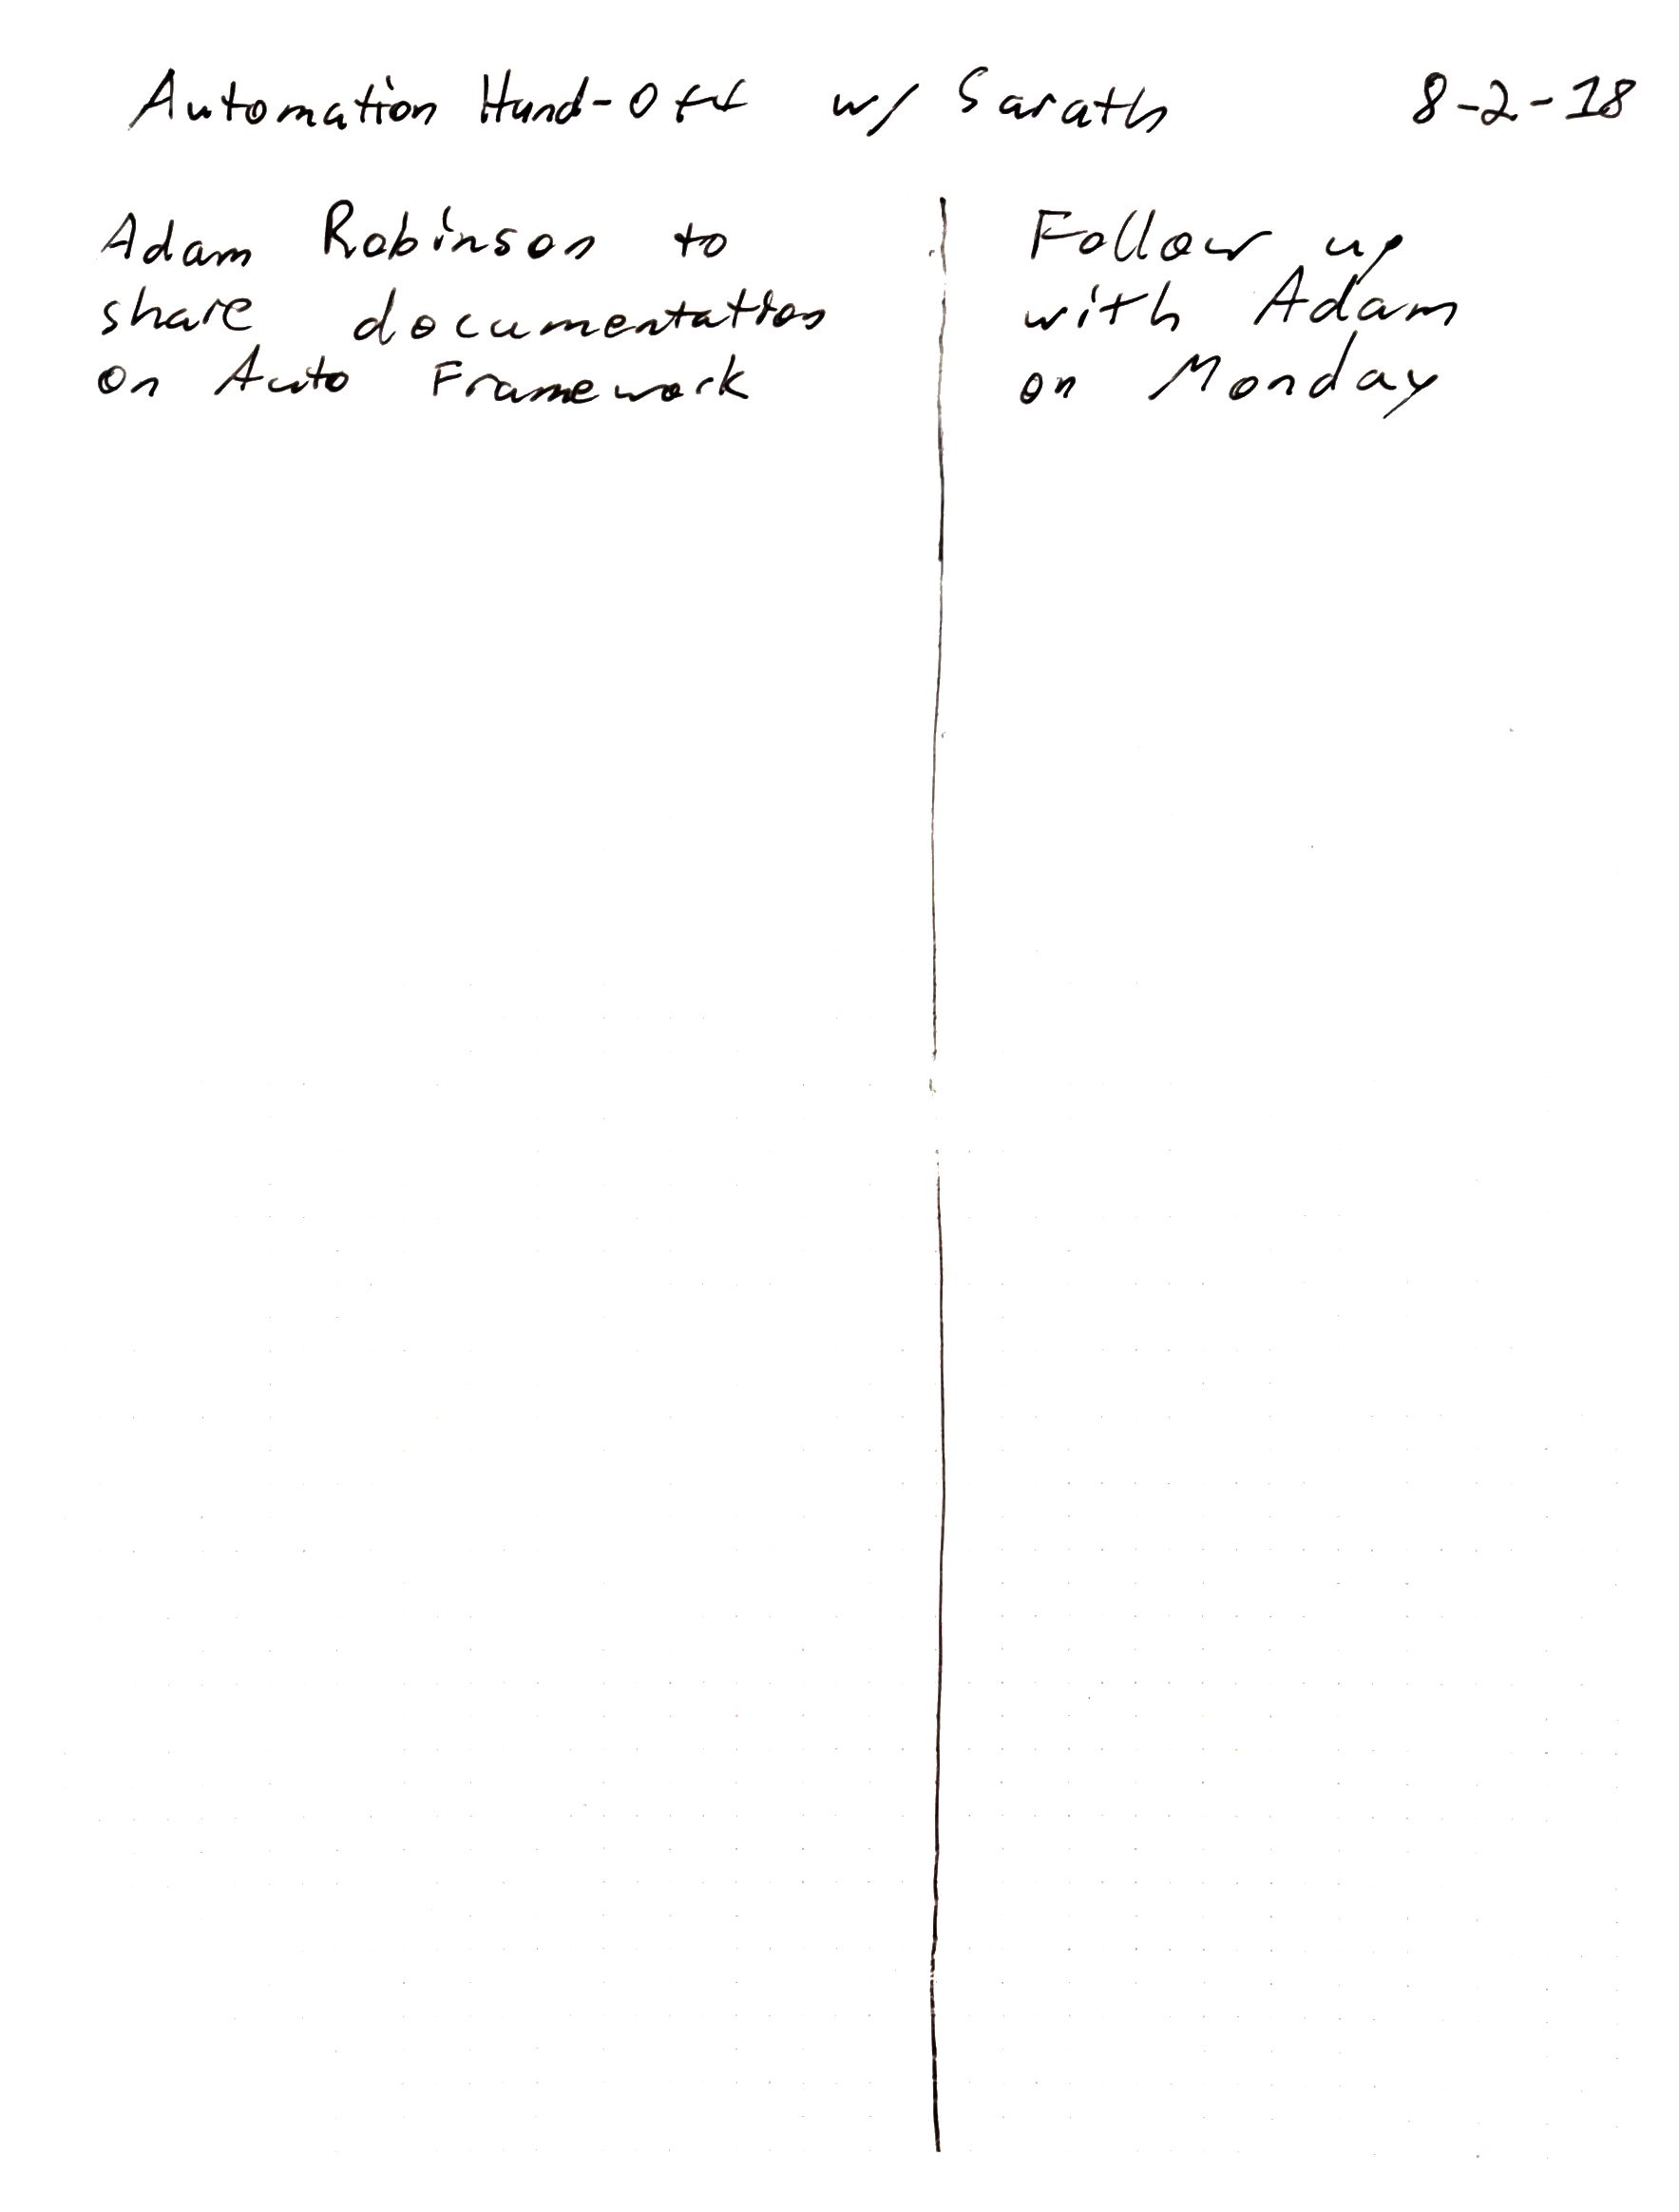 Automation Hand-Off w/ Sarath 8-2-18
Adam Robinson to
share documentation
on Auto Framework
Follow up
with Adam
on Monday